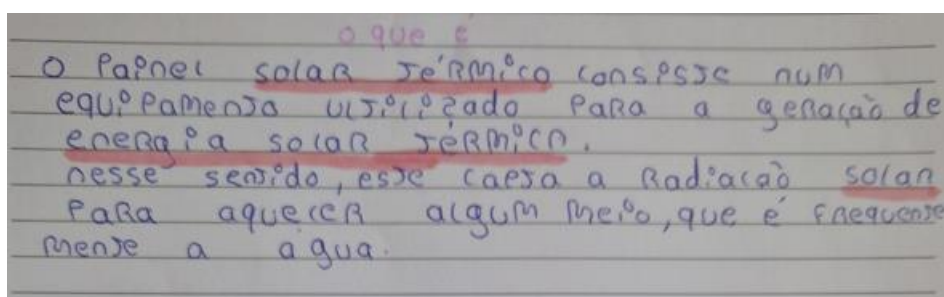 o que é
O Painel solar térmico consiste num
equipamento utilizado para a geração de
energia solar térmica.
nesse sentido, esse capta a Radiação solar
para aquecer algum meio, que é frequente
mente a agua.